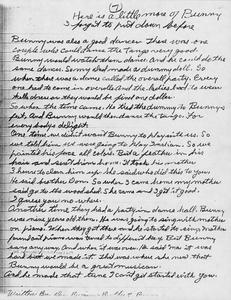 Here is a little more of Bunny
I forgot to put down before
Bunny was also a good dancer. There was one
couple who could dance the Tango very good.
Bunny would watch them dance. And he could do the
same dance. Sonny had made a dummy doll. So
when there was a dance called the overall party. Every
one had to come in overalls And the ladies had to wear
dresses or they would be fined one dollar.
So when the time came. He tied the dummy to Bunny's
feet. And Bunny would then dance the tango. For
every body's delight.
One time we didn't want Bunny to play with us. So
we told him we were going to play Indian. So we
painted his face all colors. Put a feather in his
hair and sent him home. It took his mother
3 hours to clean him up. She said who did this to you
He said brother Conn. So when I came home my mother
said go to the wood shed. She came and I got it good.
I guess you no when
Another time they had a party in dance hall. Bunny
was nine years old then. He was going to sing with mother
on piano. When they got there and he started to sing. Mother
found out piano was tuned to different key. But Bunny
sang anyway. And when it was over. He said gee it was
hard but we made it. That was where she new that
Bunny would be a great musician.
And he made that tune I can't get started with you.
Written By